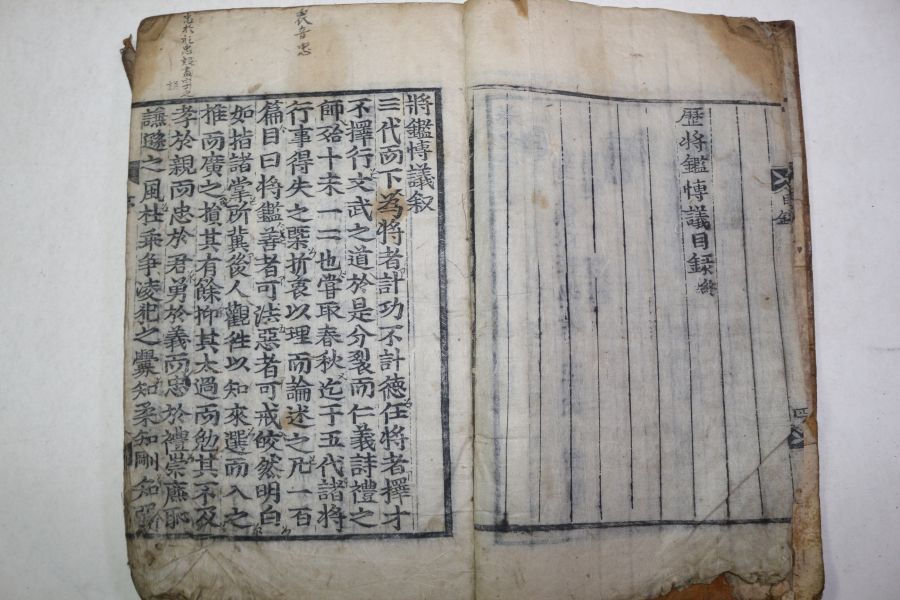 目錄
四
歷將鑑愽議目錄終
將鑑愽議叙
三代而下為將者計功不計德任將者擇才
不擇行文武之道於是分裂而仁義詩禮之
師殆十未一二也嘗取春秋迄于五代諸將
行事得失之槩折衷以理而論述之凡一百
篇目曰將鑑善者可法惡者可戒皎然明白
如指諸掌所冀後人觀徃以知來選而入之
推而廣之揩其有餘抑其太過而勉其不及
孝於親而忠於君勇於義而忠於禮崇廉恥
謙遜之風杜乘爭凌犯之釁知柔知剛知弱